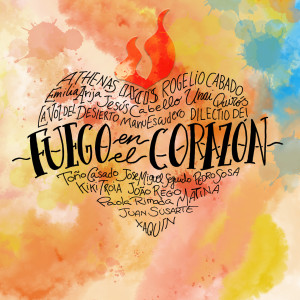 ATHENAS ROGELIO CABADO
Emilia Arija Jesús Cabello Unai Quirós
LA VOZ DEL DESIERTO Manu Escudero DILECTIO DEI
~FUEGO en el CORAZÓN~
Toño Casado José Miguel Seguido PEDRO SOSA
KIKI TROIA JOÃO REGO MATINA
Paola Rimada
JUAN SUSARTE
XAQUIN